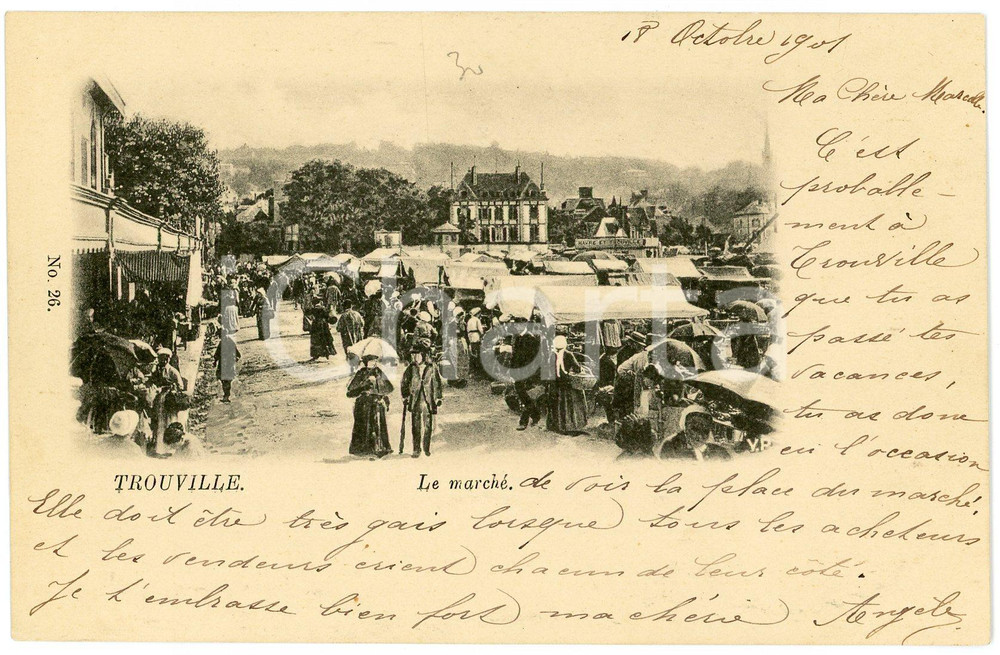 18 Octobre 1901
Ma Chère Marcelle.
C'est
probable-
ment à
Trouville
que tu as
passé tes
vacances,
tu as donc
eu l'occasion
No. 26.
HAVRE
iCharta
V.P
TROUVILLE.
Le marché.
de voir la place du marché.
Elle doit être très gais lorsque tous les acheteurs
et les vendeurs crient chacun de leur côté.
Je t'embrasse bien fort ma chérie Angèle